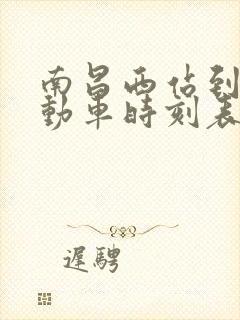 南昌西站到
動車時刻表
遲騁